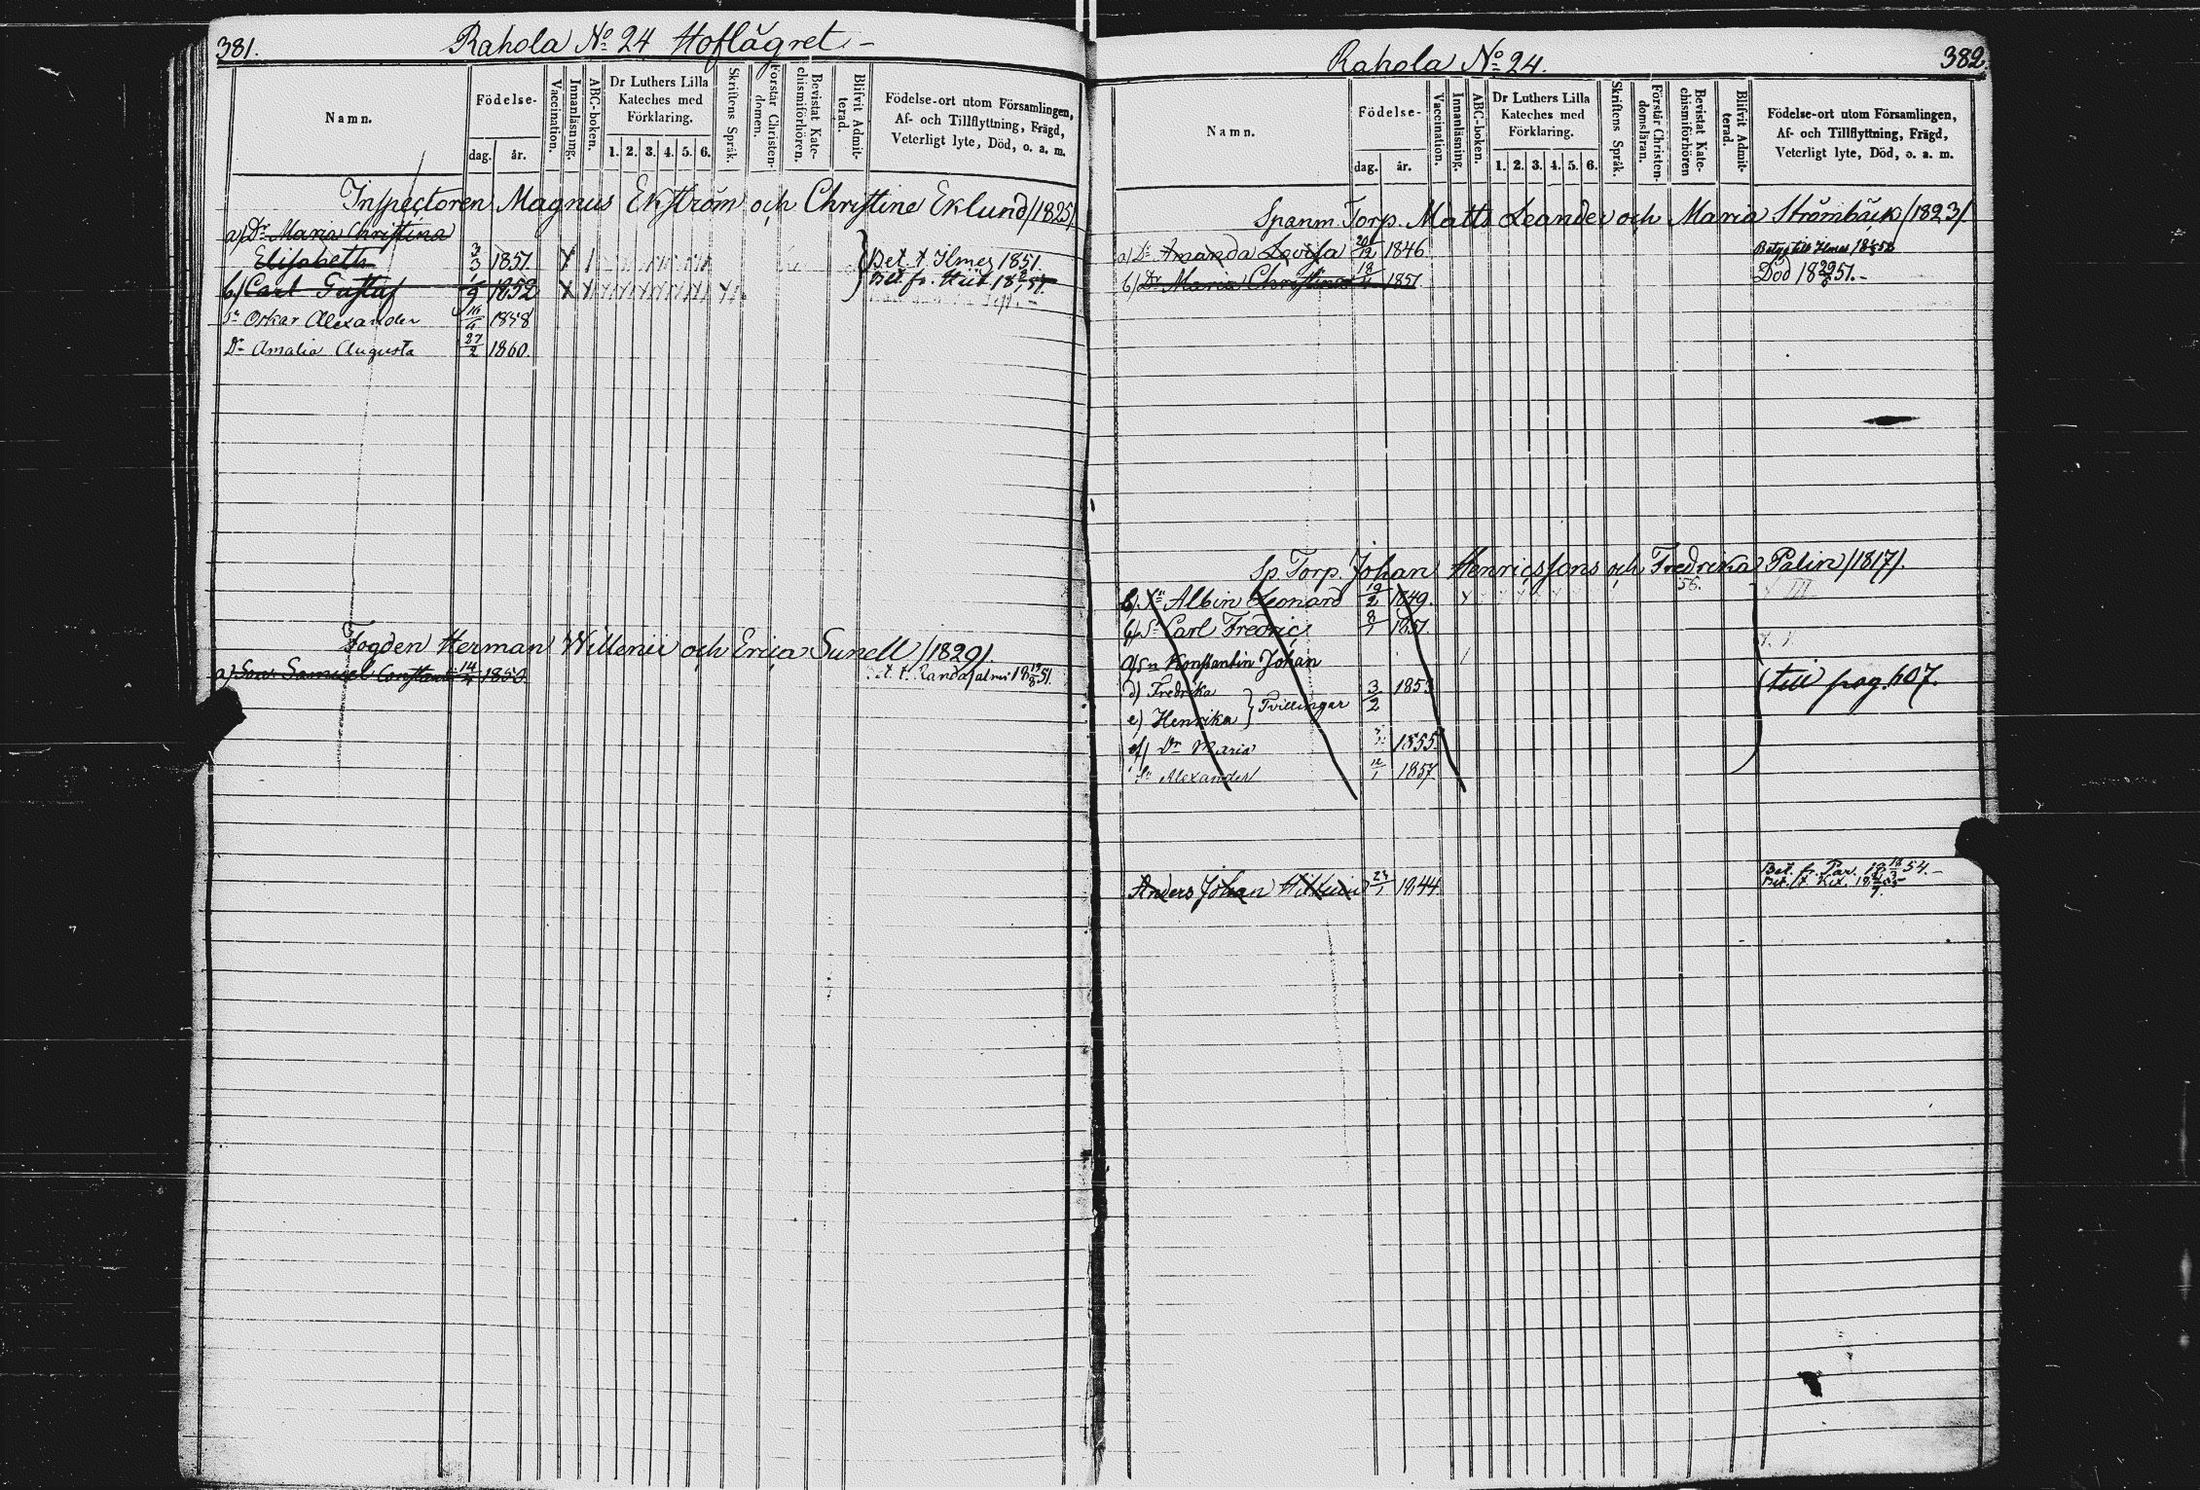 381.
Rahola No 24 Hoflägret.-
Namn.
Födelse-
dag. år.
Vaccination.
Innanläsning.
ABC-boken.
Dr Luthers Lilla
Kateches med
Förklaring.
1. 2. 3. 4. 5. 6.
Skriftens Språk.
Förstår Christen-
domen.
Bevistat Kate-
chismiförhören.
Blifvit Admit-
terad.
Födelse-ort utom Församlingen,
Af- och Tillflyttning, Frägd,
Veterligt lyte, Död, o. a. m.
Inspectoren Magnus Ekström och Christine Eklund /1825/
a) Dr Maria Christina
Elisabeth 3/3 1851. Bet. t. Ilmes 1851.
b) Carl Gustaf 1/9 1852 Bet. fr.
Sn Oskar Alexander 1858
Dr Amalia Augusta 27/2 1860.
Fogden Herman Willenii och Erica Sunell /1829/.
a) Son Samuel Constant 14/4 1850. t. Randasalmi 18 19/8 51.
Rahola No 24.
382.
Namn.
Födelse-
dag. år.
Vaccination.
Innanläsning.
ABC-boken.
Dr Luthers Lilla
Kateches med
Förklaring.
1. 2. 3. 4. 5. 6.
Skriftens Språk.
Förstår Christen-
domsläran.
Bevistat Kate-
chismiförhören
Blifvit Admit-
terad.
Födelse-ort utom Församlingen,
Af- och Tillflyttning, Frägd,
Veterligt lyte, Död, o. a. m.
Spanm. Torp. Matts Leander och Maria Strömbäck /1823/
a) Dr Amanda Lovisa 20/12 1846
b) Dr Maria Christina 18/4 1851. Död 18 29/6 51.-
Sp. Torp. Johan Henricssons och Fredrika Palin /1817/.
b) Sn Albin Leonard 19/2 1849. 56.
Sn Carl Fredric 8/1 1851.
Sn Konstantin Johan
d) Fredrika } Tvillingar 3/2 1853 till pag. 607.
e) Henrika
f) Dr Maria 1855.
Sn Alexander 12/1 1857
Anders Johan 23/1 1844 Bet. fr. Par. 54.-
Bet. t.